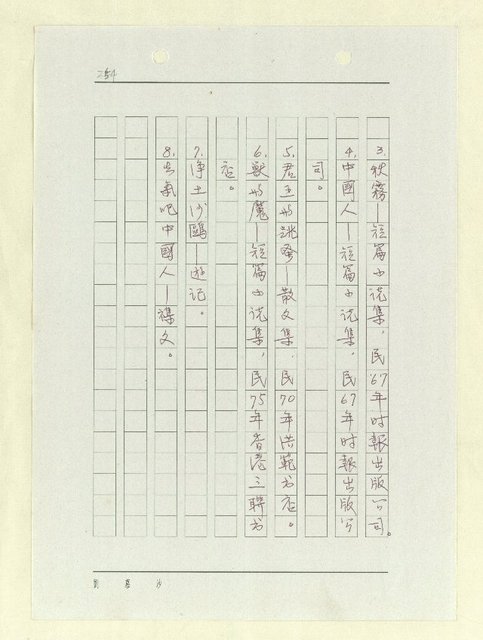 254
3.秋霧—短篇小说集，民67年时報出版公司。
4.中國人—短篇小说集，民67年时報出版公
司。
5.君王的跳蚤—散文集．民70年洪範书店。
6.獸的魔—短篇小说集，民75年香港三聯书
店。
7.净土沙鷗—遊记。
8.出氣吧中國人—襍文。
劉慕沙